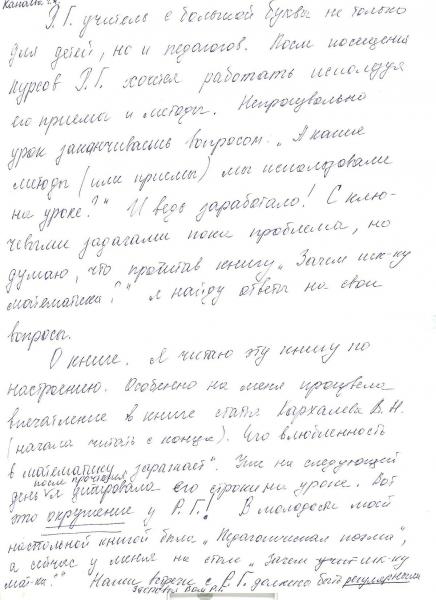 Р.Г. учитель с большой буквы не только
для детей, но и педагогов. После посещения
курсов Р.Г. хочется работать используя
его приемы и методы. Непроизвольно
урок заканчиваешь вопросом „А какие
методы (или приемы) мы использовали
на уроке?“ И ведь заработало! С клю-
чевыми задачами пока проблема, но
думаю, что прочитав книгу „Зачем шк-ку
математика?“ я найду ответы на свои
вопросы.
О книге. Я читаю эту книгу по
настроению. Особенно на меня произвела
впечатление в книге статья В.Н.
(начала читать с конца). Его влюбленность
в математику „заражает“. Уже на следующий
день после прочтения я цитировала его строки на уроке. Вот
это окружение у Р.Г.! В молодости моей
настольной книгой была „Педагогическая поэма“,
а сейчас у меня на столе „Зачем шк-ку
мат-ка?“ Наши встречи с Р.Г. должны быть регулярными